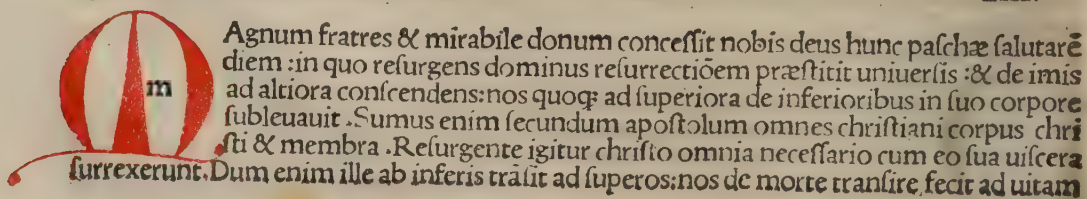 MAgnum fratres & mirabile donum conceſſit nobis deus hunc paſchæ ſalutarē
diem :in quo reſurgens dominus reſurrectiōem præſtitit uniuerſis :& de imis
m
ad altiora conſcendens:nos quoqꝫ ad ſuperiora de inferioribus in ſuo corpore
ſubleuauit .Sumus enim ſecundum apoſtolum omnes chriſtiani corpus chri
ſti & membra .Reſurgente igitur chriſto omnia neceſſario cum eo ſua uiſcera
ſurrexerunt.Dum enim ille ab inferis trāſit ad ſuperos:nos de morte tranſire fecit ad uitam